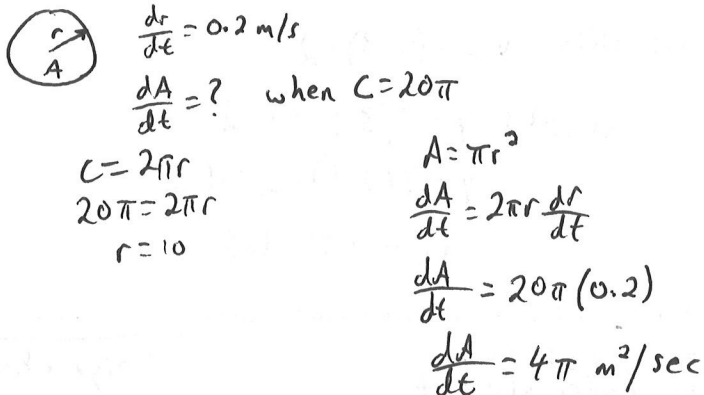 r
A
dr/dt = 0.2 m/s
dA/dt = ? when C = 20π
C = 2πr
20π = 2πr
r = 10
A = πr²
dA/dt = 2πr dr/dt
dA/dt = 20π(0.2)
dA/dt = 4π m²/sec